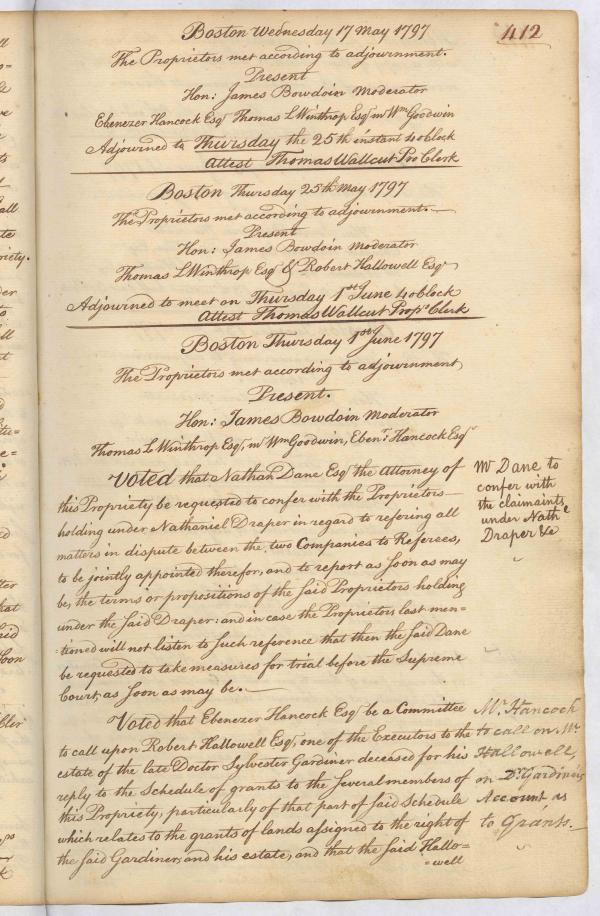 412
Boston Wednesday 17 May 1797
The Proprietors met according to adjournment.
Present
Hon: James Bowdoin Moderator
Ebenezer Hancock Esqr Thomas L Winthrop Esqr mr Wm Goodwin
Adjourned to Thursday the 25th instant 4 oClock
Attest Thomas Wallcut Pro Clerk
Boston Thursday 25th May 1797
The Proprietors met according to adjournment.
Present
Hon: James Bowdoin Moderator
Thomas L Winthrop Esqr & Robert Hallowell Esqr
Adjourned to meet on Thursday 1st June 4 oClock
Attest Thomas Wallcut Propr Clerk
Boston Thursday 1st June 1797
The Proprietors met according to adjournment
Present.
Hon: James Bowdoin Moderator
Thomas L Winthrop Esqr, mr Wm Goodwin, Ebenr: Hancock Esqr
Voted that Nathan Dane Esqr the Attorney of
this Propriety be requested to confer with the Proprietors
holding under Nathaniel Draper in regard to refering all
matters in dispute between the two Companies to Referees,
to be jointly appointed therefor, and to report as soon as may
be, the terms or propositions of the said Proprietors holding
under the said Draper: and in case the Proprietors last men=
=tioned will not listen to such reference that then the said Dane
be requested to take measures for trial before the Supreme
Court, as soon as may be.
Mr Dane to
confer with
the claimaints
under Nathe
Draper &c
Voted that Ebenezer Hancock Esqr be a Committee
to call upon Robert Hallowell Esqr, one of the Executors to the
estate of the late Doctor Sylvester Gardiner deceased for his
reply to the Schedule of grants to the several members of
this Propriety, particularly of that part of said Schedule
which relates to the grants of lands assigned to the right of
the said Gardiner, and his estate, and that the said Hallo=
=well
Mr. Hancock
to call on Mr.
Hallowell,
on Dr. Gardiner's
Account as
to grants.